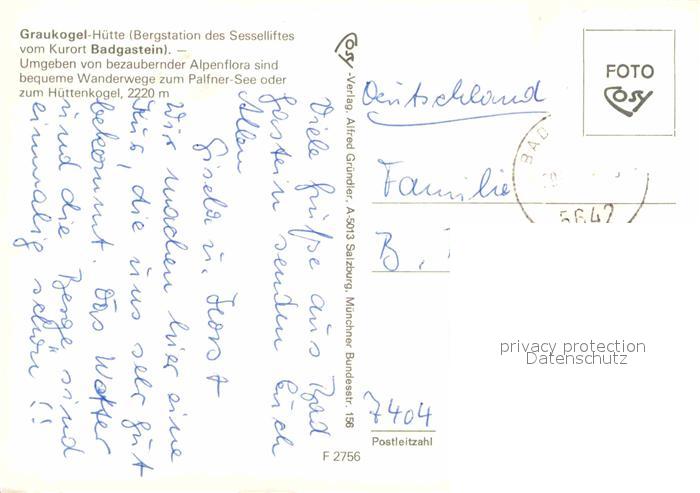 Graukogel-Hütte (Bergstation des Sesselliftes
vom Kurort Badgastein). —
Umgeben von bezaubernder Alpenflora sind
bequeme Wanderwege zum Palfner-See oder
zum Hüttenkogel, 2220 m
Viele Grüße aus Bad
Gastein senden Euch
Allen
Gisela u. Horst
Wir machen hier eine
Kur, die uns sehr gut
bekommt. Das Wetter
und die Berge sind
einmalig schön!!
Cosy-Verlag, Alfred Gründler, A-5013 Salzburg, Münchner Bundesstr. 156
F 2756
FOTO
Cosy
BAD
5642
Deutschland
Familie
B.
7404
Postleitzahl
privacy protection
Datenschutz